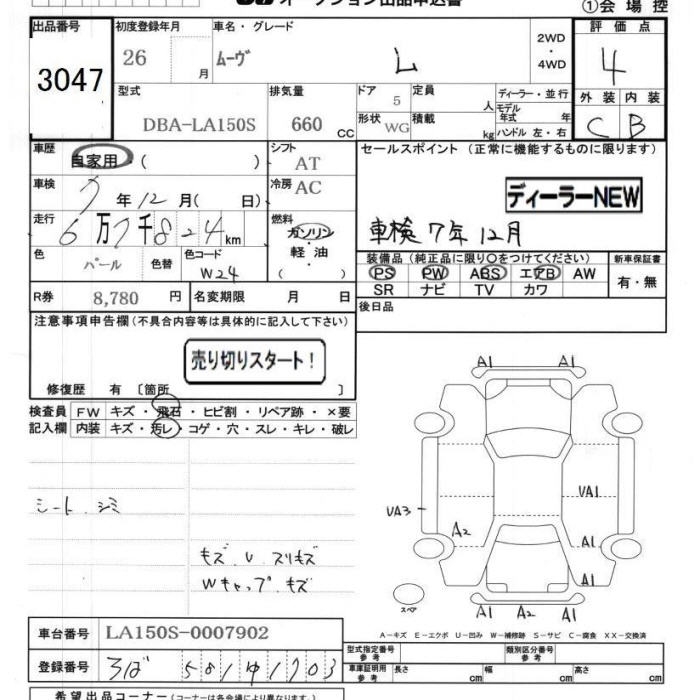 オークション出品申込書
①会場控
出品番号 初度登録年月 車名・グレード 2WD ・ 4WD 評価点
3047 26 月 ムーヴ L 4
型式 排気量 ドア 5 定員 人 ディーラー・並行 外装 内装
DBA-LA150S 660 CC 形状 WG 積載 kg モデル年式 年 ハンドル 左・右 C B
車歴 自家用・( ) シフト AT セールスポイント (正常に機能するものに限ります)
車検 7年12月( 日) 冷房 AC ディーラーNEW
走行 6万7千824km 燃料 ガソリン・軽油 ( ) 車検 7年12月
色 パール 色替 色コード W24 装備品 (純正品に限り○をつけてください) 新車保証書
PS PW ABS エアB AW 有・無
SR ナビ TV カワ
R券 8,780 円 名変期限 月 日 後日品
注意事項申告欄 (不具合内容等は具体的に記入して下さい)
売り切りスタート!
修復歴 有 〔箇所 〕
検査員 FW キズ・飛石・ヒビ割・リペア跡・×要
記入欄 内装 キズ・汚レ・コゲ・穴・スレ・キレ・破レ
A1 A1
シート、シミ
VA1
VA3
A2 A1
キズ U スリキズ
Wキャップ キズ
A1
スペア
A1 A2 A1
A-キズ E-エクボ U-凹み W-補修跡 S-サビ C-腐食 XX-交換済
車台番号 LA150S-0007902
型式指定番号 参考 類別区分番号 参考
登録番号 581 ゆ1703
車庫証明用 参考 長さ cm 幅 cm 高さ cm
希望出品コーナー (コーナーは各会場により異なります)